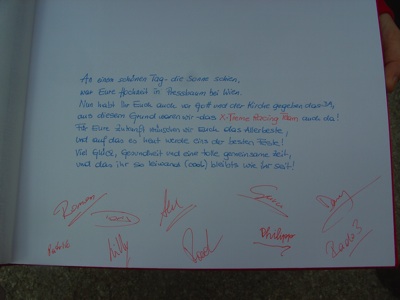 An einem schönen Tag - die Sonne schien,
war Eure Hochzeit in Pressbaum bei Wien.
Nun habt Ihr Euch auch vor Gott und der Kirche gegeben das JA,
aus diesem Grund waren wir das X-Treme Racing Team auch da!
Für Eure Zukunft wünschen wir Euch das Allerbeste,
und auf das es heut werde eins der besten Feste!
Viel Glück, Gesundheit und eine tolle gemeinsame Zeit,
und das ihr so leiwand (cool) bleibts wie ihr seit!
Roman
Willy
Philipp